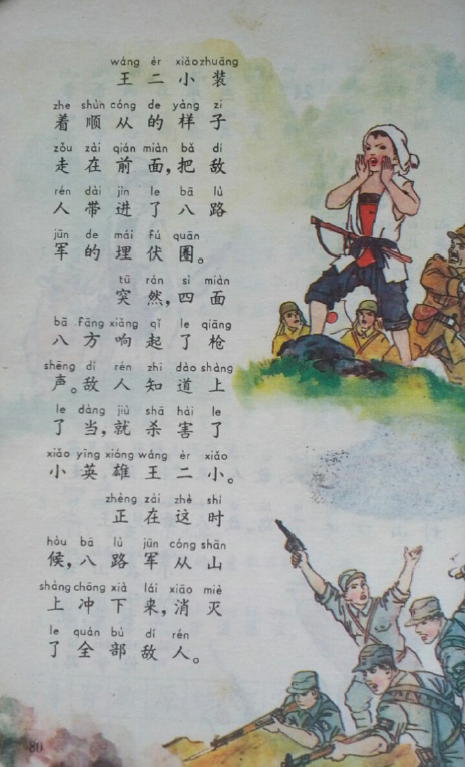 wáng èr xiǎo zhuāng
王二小装
zhe shùn cóng de yàng zi
着顺从的样子
zǒu zài qián miàn bǎ dí
走在前面，把敌
rén dài jìn le bā lù
人带进了八路
jūn de mái fú quān
军的埋伏圈。
tū rán sì miàn
突然，四面
bā fāng xiǎng qǐ le qiāng
八方响起了枪
shēng dí rén zhī dào shàng
声。敌人知道上
le dàng jiù shā hài le
了当，就杀害了
xiǎo yīng xióng wáng èr xiǎo
小英雄王二小。
zhèng zài zhè shí
正在这时
hòu bā lù jūn cóng shān
候，八路军从山
shàng chōng xià lái xiāo miè
上冲下来，消灭
le quán bù dí rén
了全部敌人。
80